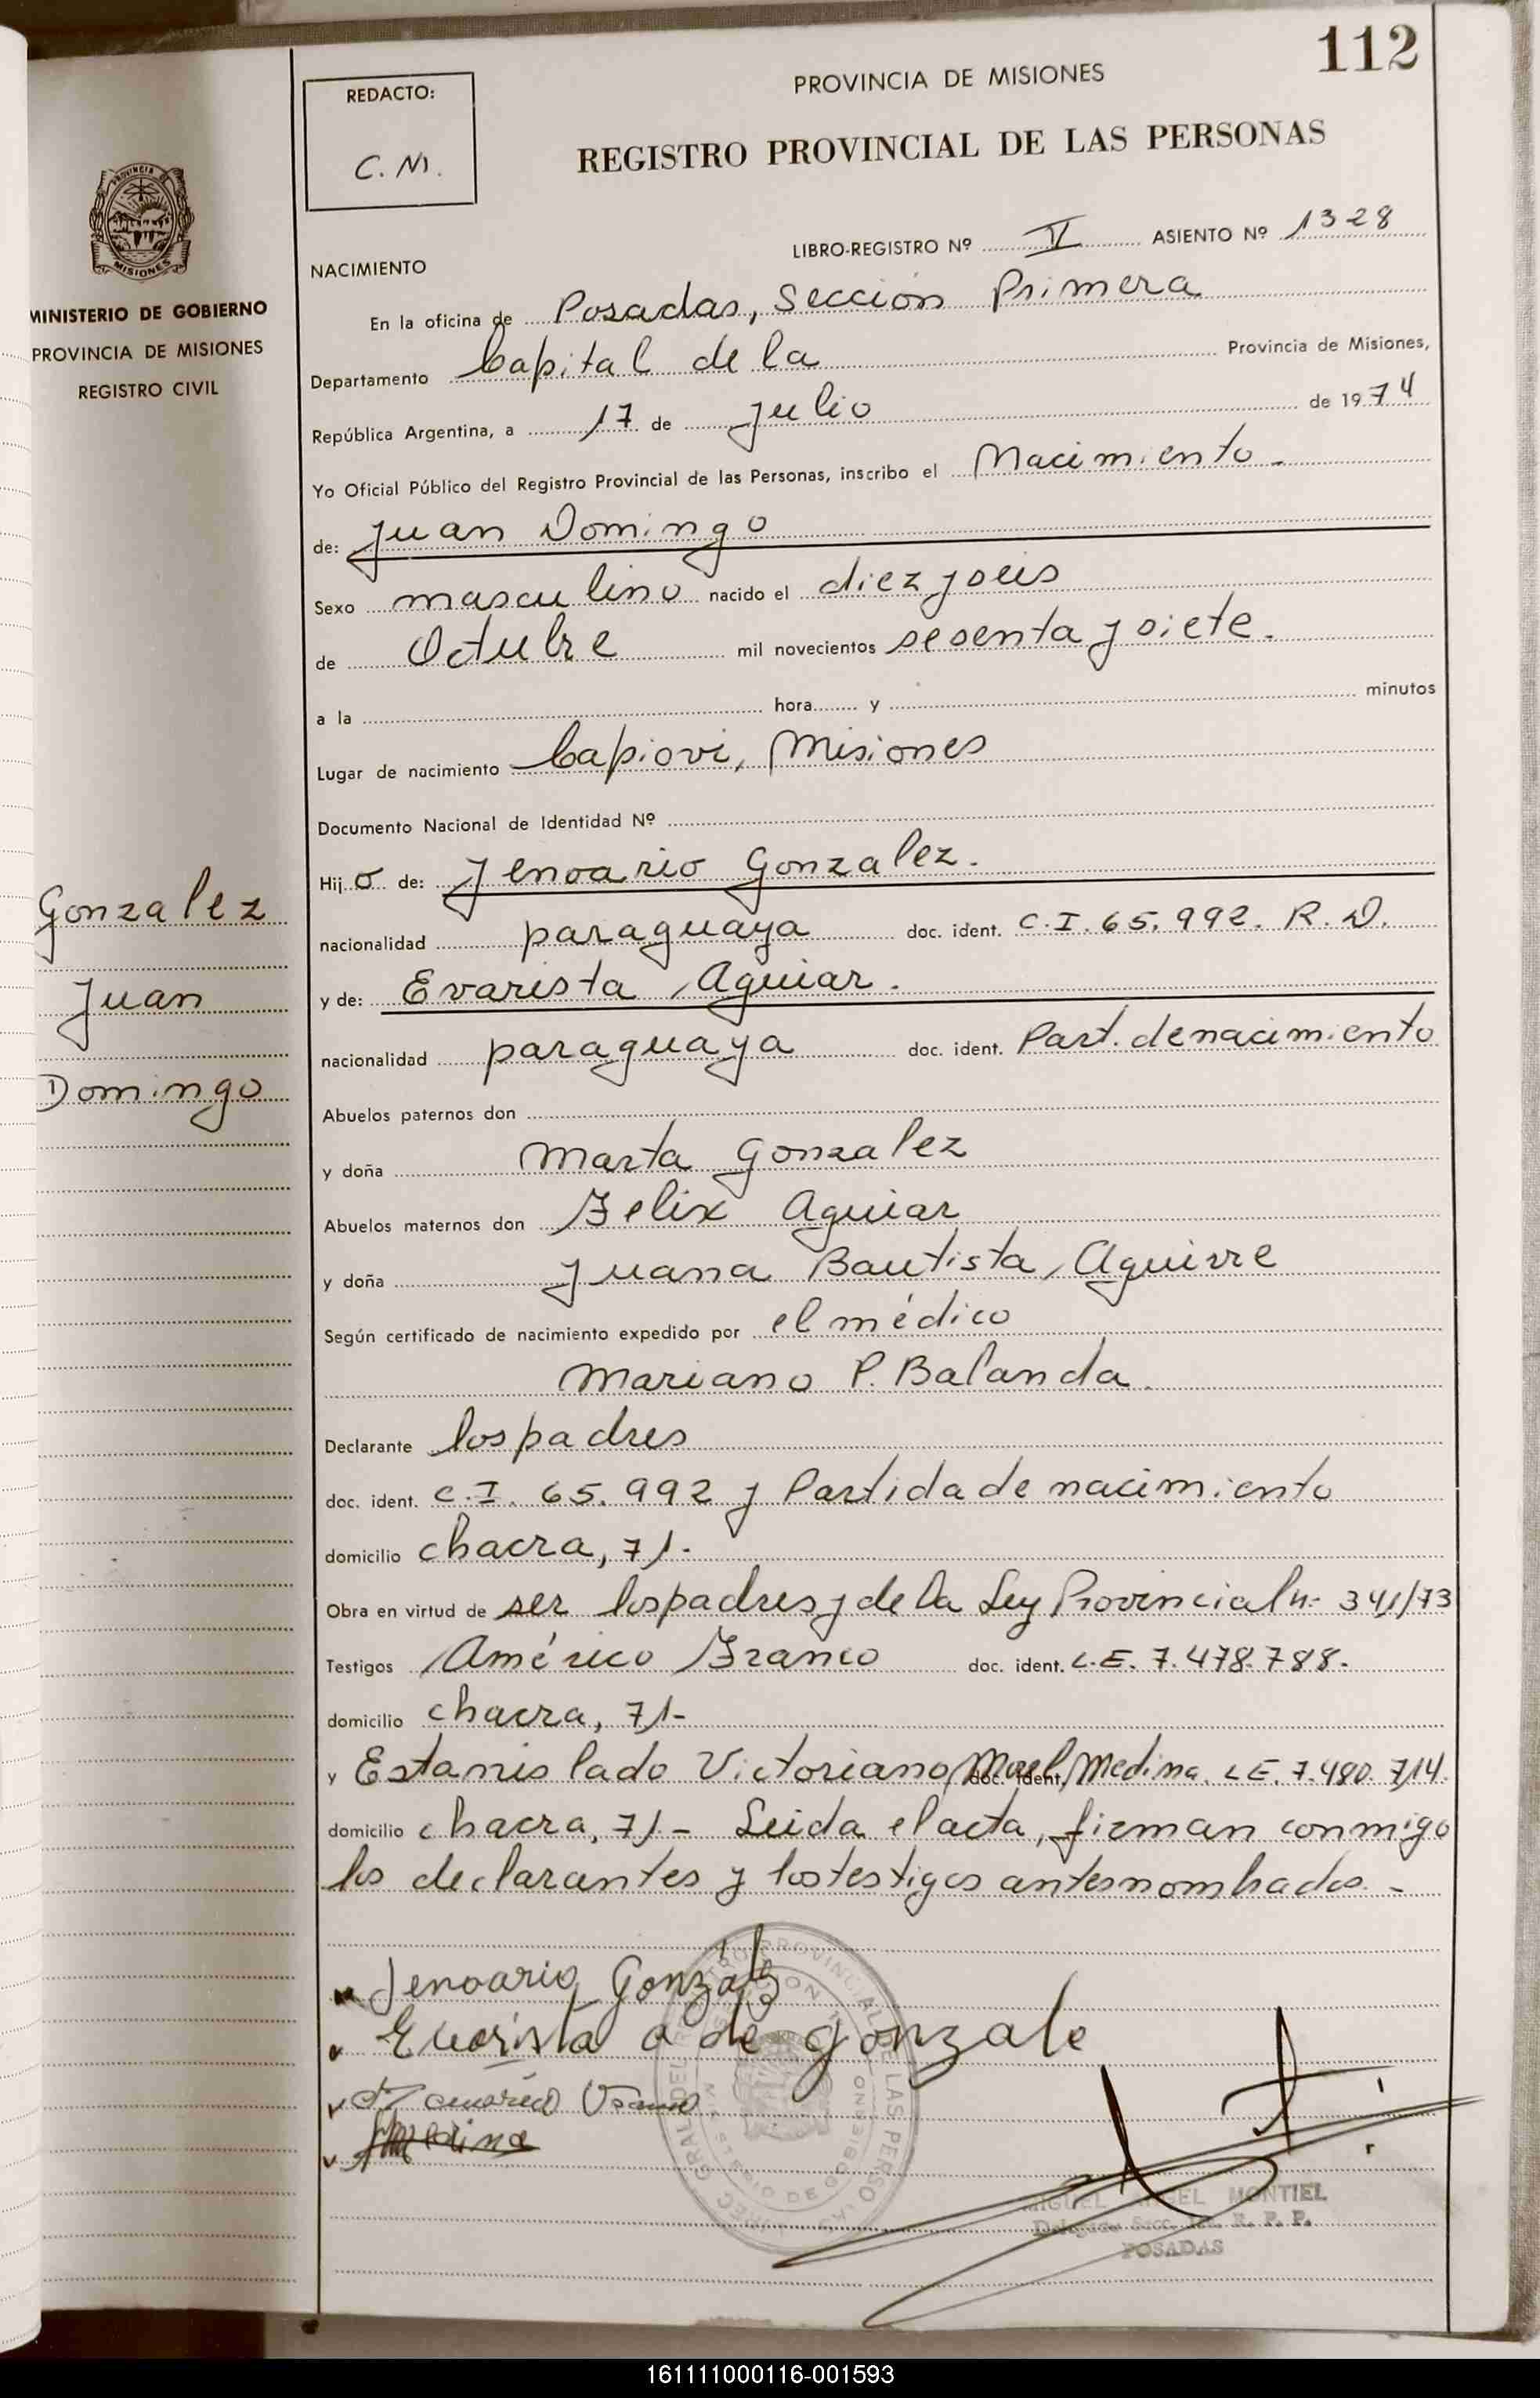 112
REDACTO:
C. M.
PROVINCIA DE MISIONES
REGISTRO PROVINCIAL DE LAS PERSONAS
PROVINCIA
MISIONES
MINISTERIO DE GOBIERNO
PROVINCIA DE MISIONES
REGISTRO CIVIL
Gonzalez
Juan
Domingo
LIBRO-REGISTRO Nº V ASIENTO Nº 1328
NACIMIENTO
En la oficina de Posadas, Sección Primera
Departamento Capital de la Provincia de Misiones,
República Argentina, a 17 de Julio de 1974
Yo Oficial Público del Registro Provincial de las Personas, inscribo el Nacimiento -
de: Juan Domingo
Sexo masculino nacido el diez y seis
de Octubre mil novecientos sesenta y siete.
a la hora y minutos
Lugar de nacimiento Capiovi, Misiones
Documento Nacional de Identidad Nº
Hijo de: Jenoario Gonzalez.
nacionalidad paraguaya doc. ident. C.I. 65.992. R. D.
y de: Evarista Aguiar.
nacionalidad paraguaya doc. ident. Part. de nacimiento
Abuelos paternos don
y doña Marta Gonzalez
Abuelos maternos don Felix Aguiar
y doña Juana Bautista Aguirre
Según certificado de nacimiento expedido por el médico
Mariano P. Balanda.
Declarante los padres
doc. ident. C.I. 65.992 y Partida de nacimiento
domicilio chacra, 71.
Obra en virtud de ser los padres y de la Ley Provincial n- 341/73
Testigos Américo Franco doc. ident. L.E. 7.478.788.
domicilio chacra, 71-
y Estanislado Victoriano Morel Medina doc. ident. L.E. 7.480.714.
domicilio chacra, 71- Leida el acta, firman conmigo
los declarantes y los testigos antesnombrados. -
Jenoario Gonzalez
Evarista a de gonzale
Medina
MIGUEL ANGEL MONTIEL
Delegado Secc. 1ra. R. P. P.
POSADAS
161111000116-001593